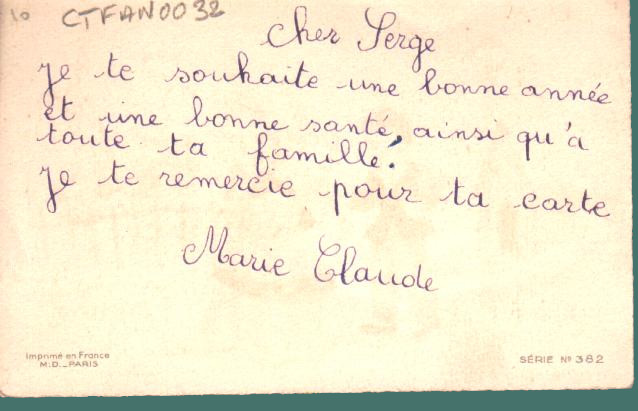 10 CTFAN0032
Cher Serge
Je te souhaite une bonne année
et une bonne santé, ainsi qu'à
toute ta famille.
Je te remercie pour ta carte
Marie Claude
Imprimé en France
M.D._PARIS
SÉRIE Nº 382